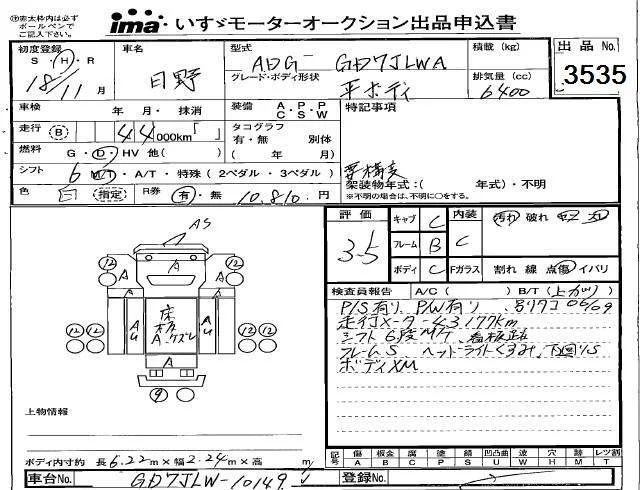 ㊟赤太枠内は必ず ボールペンで ご記入下さい
ima いすゞモーターオークション出品申込書
初度登録 S・H・R 18/11月
車名 日野
型式 ADG-GD7JLWA
グレード・ボディ形状 平ボディ
積載(kg)
排気量(cc) 6400
出品No. 3535
車検 年・月・抹消
装備 A.C P.S P.W
特記事項
走行 B 44000km「 」
タコグラフ 有・無 別体
( 年 月)
燃料 G・D・HV 他( )
シフト 6 M/T・A/T・特殊(2ペダル・3ペダル)
架装物年式:( 年式)・不明
※不明の場合は、不明に○をする。
色 白 (指定) R券 有・無 10,810.円
評価 3.5
キャブ C
フレーム B
ボディ C
内装 C
汚れ 破れ
Fガラス 割れ 線 点傷 イバリ
検査員報告 A/C( ) B/T(上カツ)
P/S有り、P/W有り、 06/09
走行メーター43,177km
シフト6段MT、
フレームS、ヘッドライトくすみ、下回りS
ボディXM
AS
A
床板 A.ケズレ
AU
上物情報
ボディ内寸約 長6.22m×幅2.24m×高 m
記号 傷A 板金B 腐C 塗P 錆S 凹凸曲U 波W 穴H 跡M レツ割T
車台No. GD7JLW-10149
登録No.